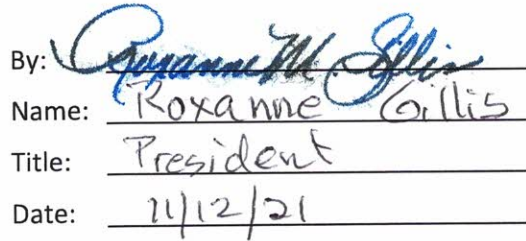 By: Roxanne M. Gillis
Name: Roxanne Gillis
Title: President
Date: 11/12/21